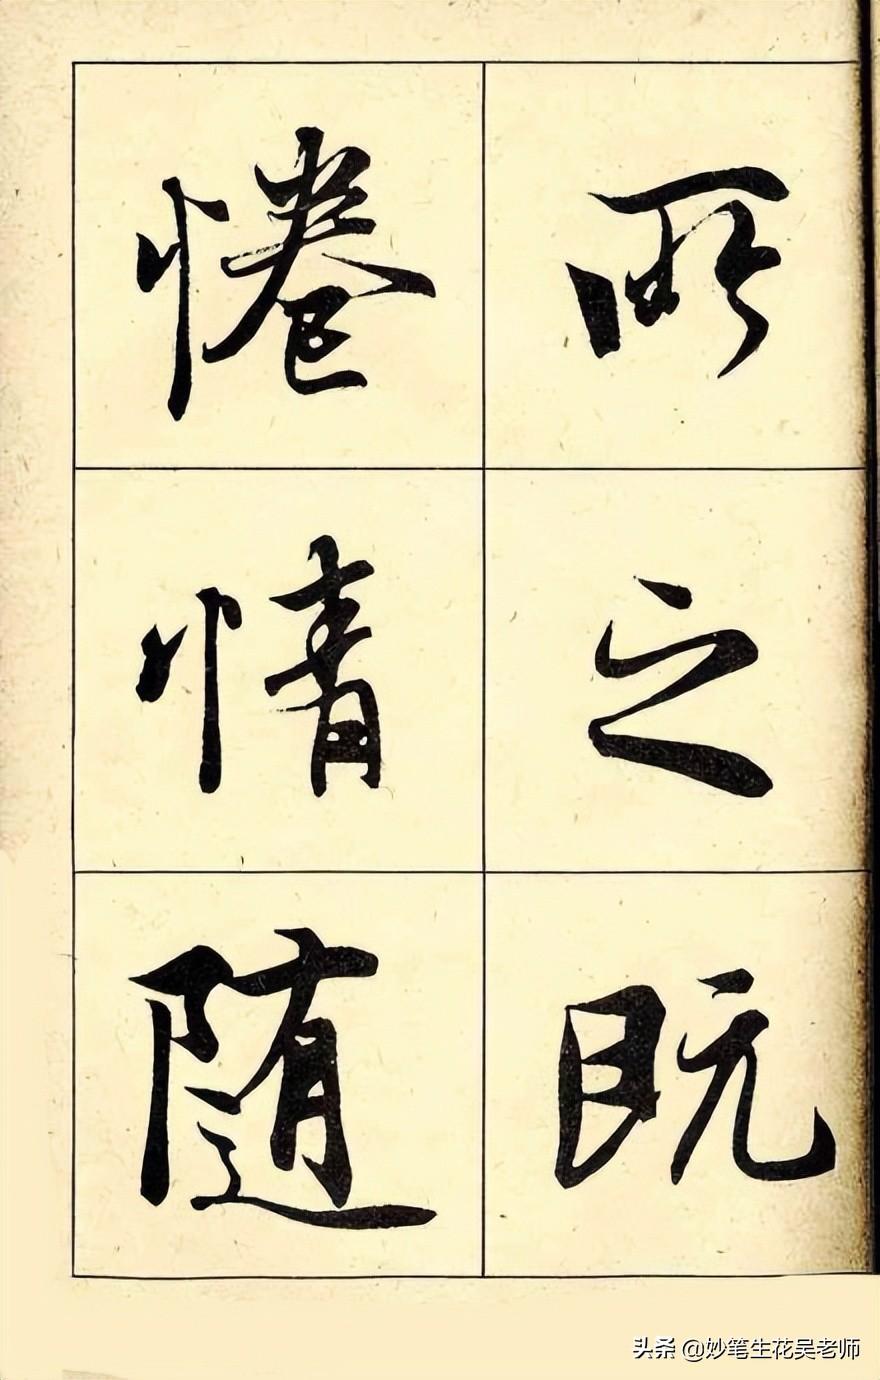 所之既
惓情随
头条 @妙笔生花吴老师